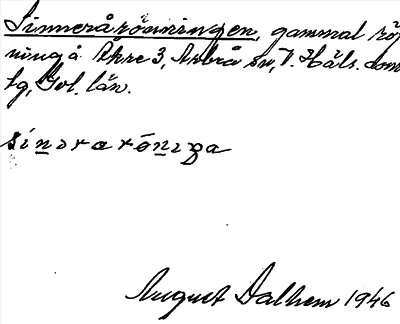 Sinneråsönningen, gammal röj
ning å Åkre 3, Arbrå sn, V. Häls. dom
sg, Gvl. län.
sinɩrarönɩga
August Dalhem 1946